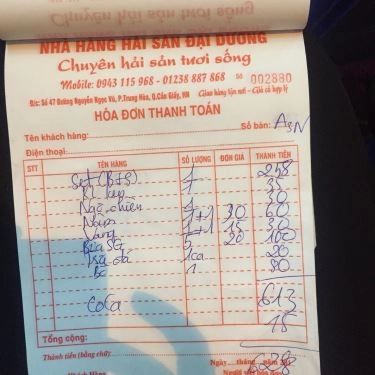 Chuyên hải sản tươi sống
NHÀ HÀNG HẢI SẢN ĐẠI DƯƠNG
Chuyên hải sản tươi sống
Mobile: 0943 115 968 - 01238 887 868 Số 002880
Đ/c: Số 47 Đường Nguyễn Ngọc Vũ, P.Trung Hòa, Q.Cầu Giấy, HN Giao hàng tận nơi - Giá cả hợp lý
HÓA ĐƠN THANH TOÁN
Tên khách hàng: Số bàn: A3N
Điện thoại:
STT TÊN HÀNG SỐ LƯỢNG ĐƠN GIÁ THÀNH TIỀN
Set (B+S) 1 258
1 35
Ngô chiên 1 30
Nấm 1+1 30 60
1+1 15 30
Bia SG 5 20 100
Trà đá 1ca 20
1 80
613
CoCa 15
Tổng cộng:
Thành tiền (bằng chữ):
628
Ngày tháng năm 201
Khách Hàng